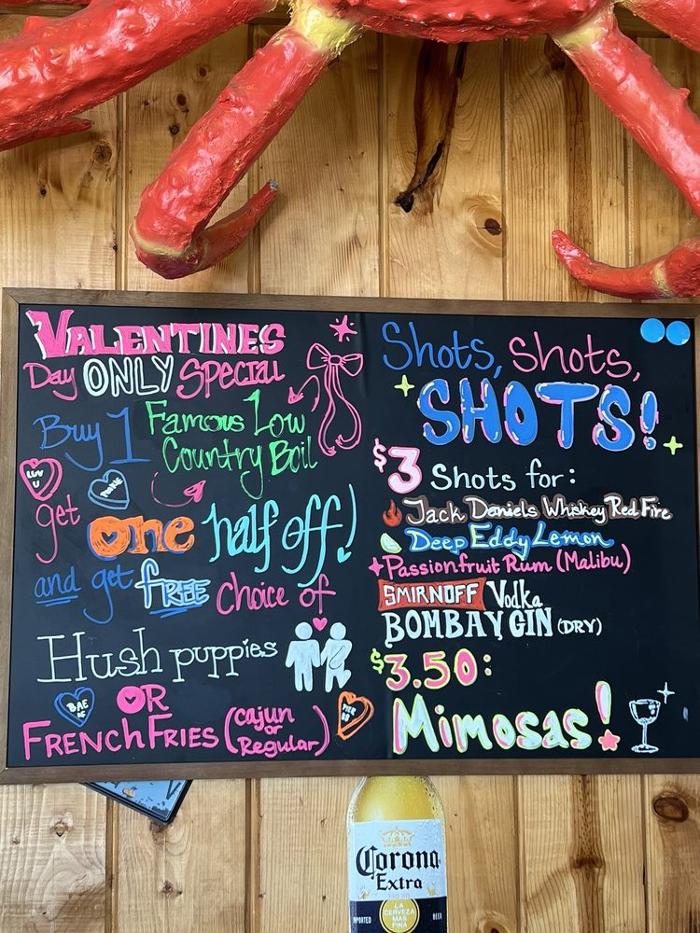 VALENTINES
Day ONLY Special
Buy 1 Famous Low
Country Boil
LUV
U
get one half off!
and get FREE Choice of
Hush puppies
BAE
OR
FRENCH FRIES (Cajun
or
Regular)
Shots, Shots,
SHOTS!
$3 Shots for:
Jack Daniels Whiskey Red Fire
Deep Eddy Lemon
Passionfruit Rum (Malibu)
SMIRNOFF Vodka
BOMBAY GIN (DRY)
$3.50:
Mimosas!
Corona
Extra
IMPORTED
BEER
LA
CERVEZA
MAS
FINA